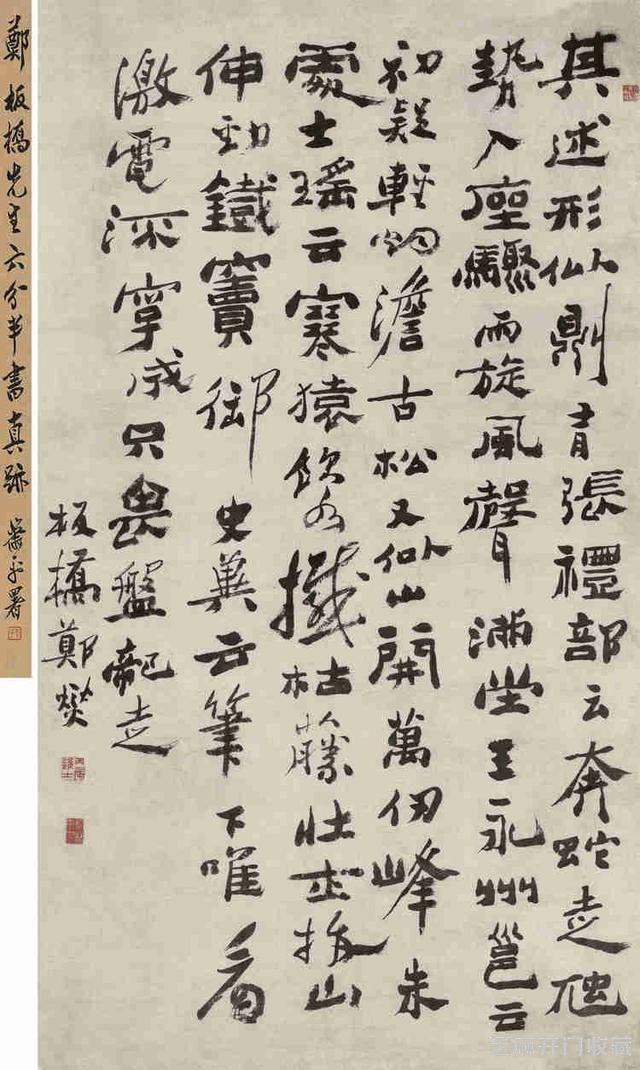 其述形似則有張禮部云奔蛇走虺
勢入座驟雨旋風聲滿堂王永州邕云
初疑輕烟澹古松又似山開萬仞峰朱
處士瑤云寒猿飲水撼枯藤壯士拔山
伸勁鐵竇御史冀云筆下唯看
激電流字成只畏盤龍走
板橋鄭燮
鄭板橋先生六分半書真跡 蕭平署
芝麻开门收藏